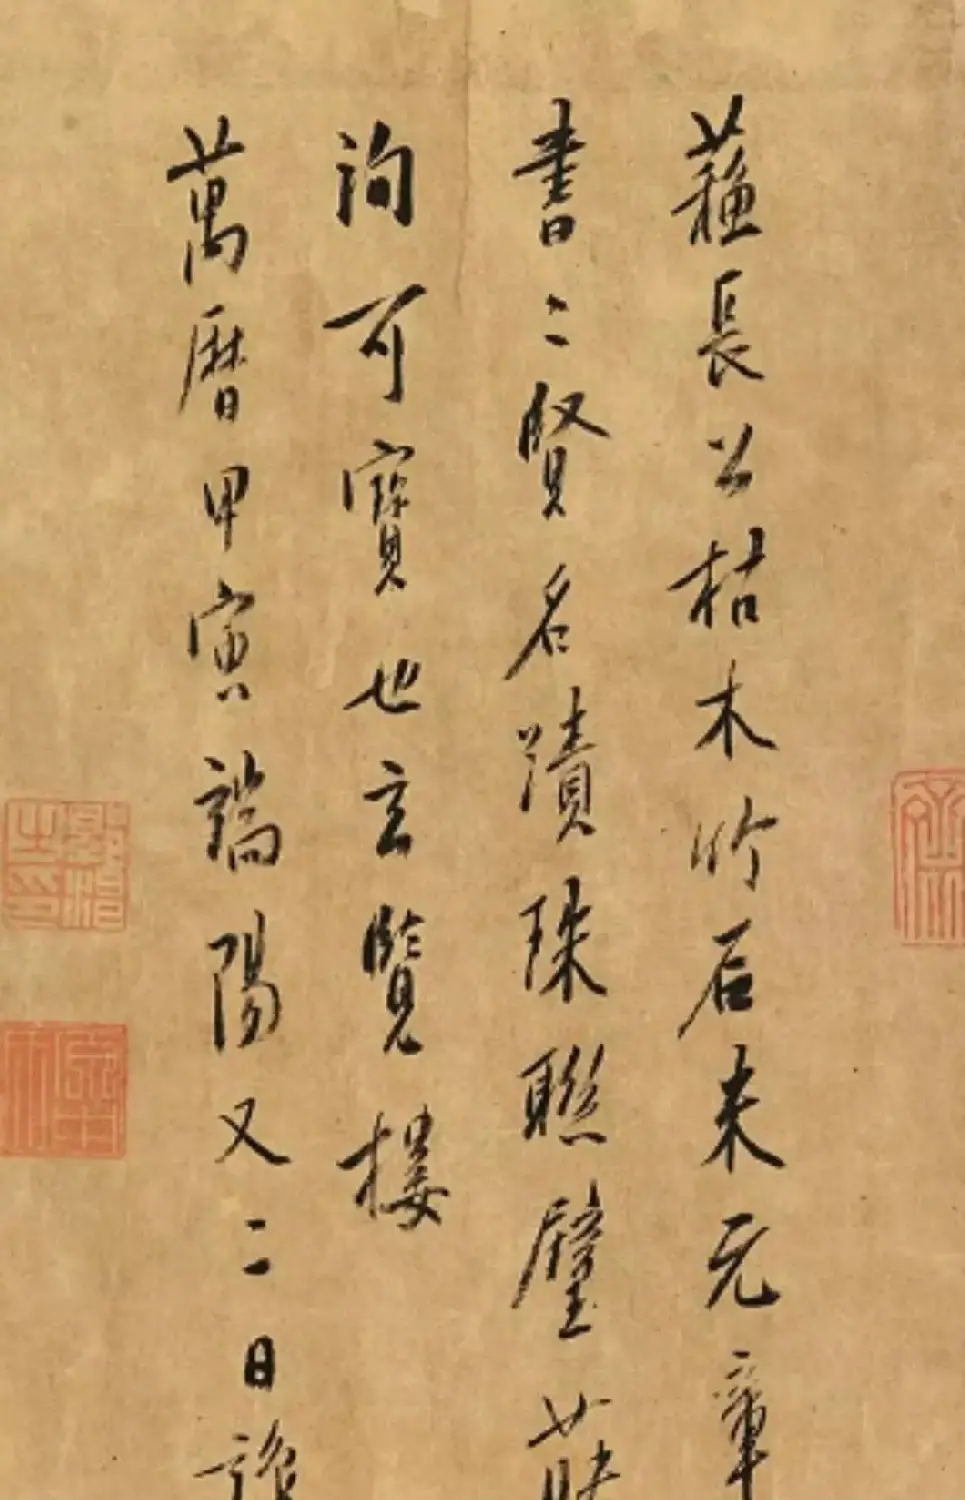 蘇長公枯木竹石米元章
書二賢名蹟珠聯璧
詢可寶也玄覽樓
萬曆甲寅端陽又二日